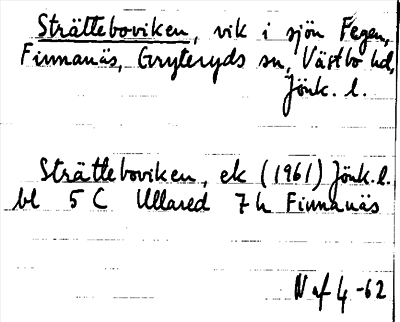 Strätteboviken, vik i sjön Fegen,
Finnanäs, Gryteryds sn, Västbo hd,
Jönk. l.
Strätteboviken, ek (1961) Jönk. l.
bl 5 C Ullared 7 h Finnanäs
N af 4-62